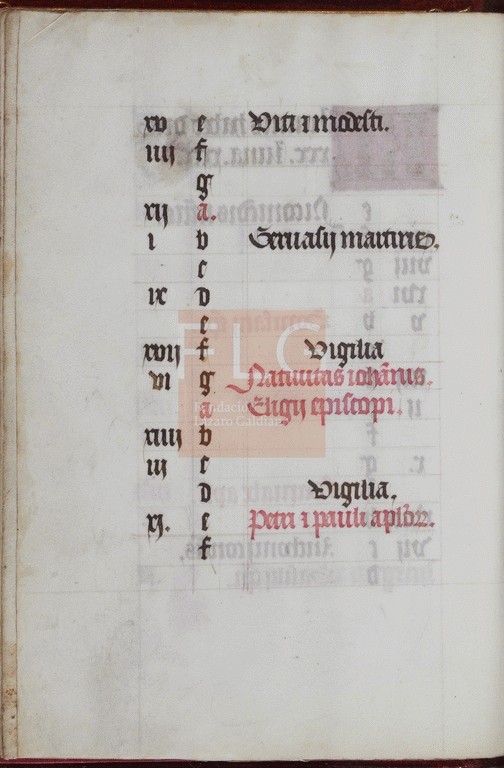 xv e Viti ⁊ modesti.
iiij f
g
xij a.
i b Geruasij martiris.
c
ix d
e
xvij f Vigilia
vi g Natiuitas iohānis.
a Eligij episcopi.
xiiij b
iij c
d Vigilia.
xj. e Petri ⁊ pauli aplōꝝ.
f
FLG
Fundación
Lázaro Galdiano